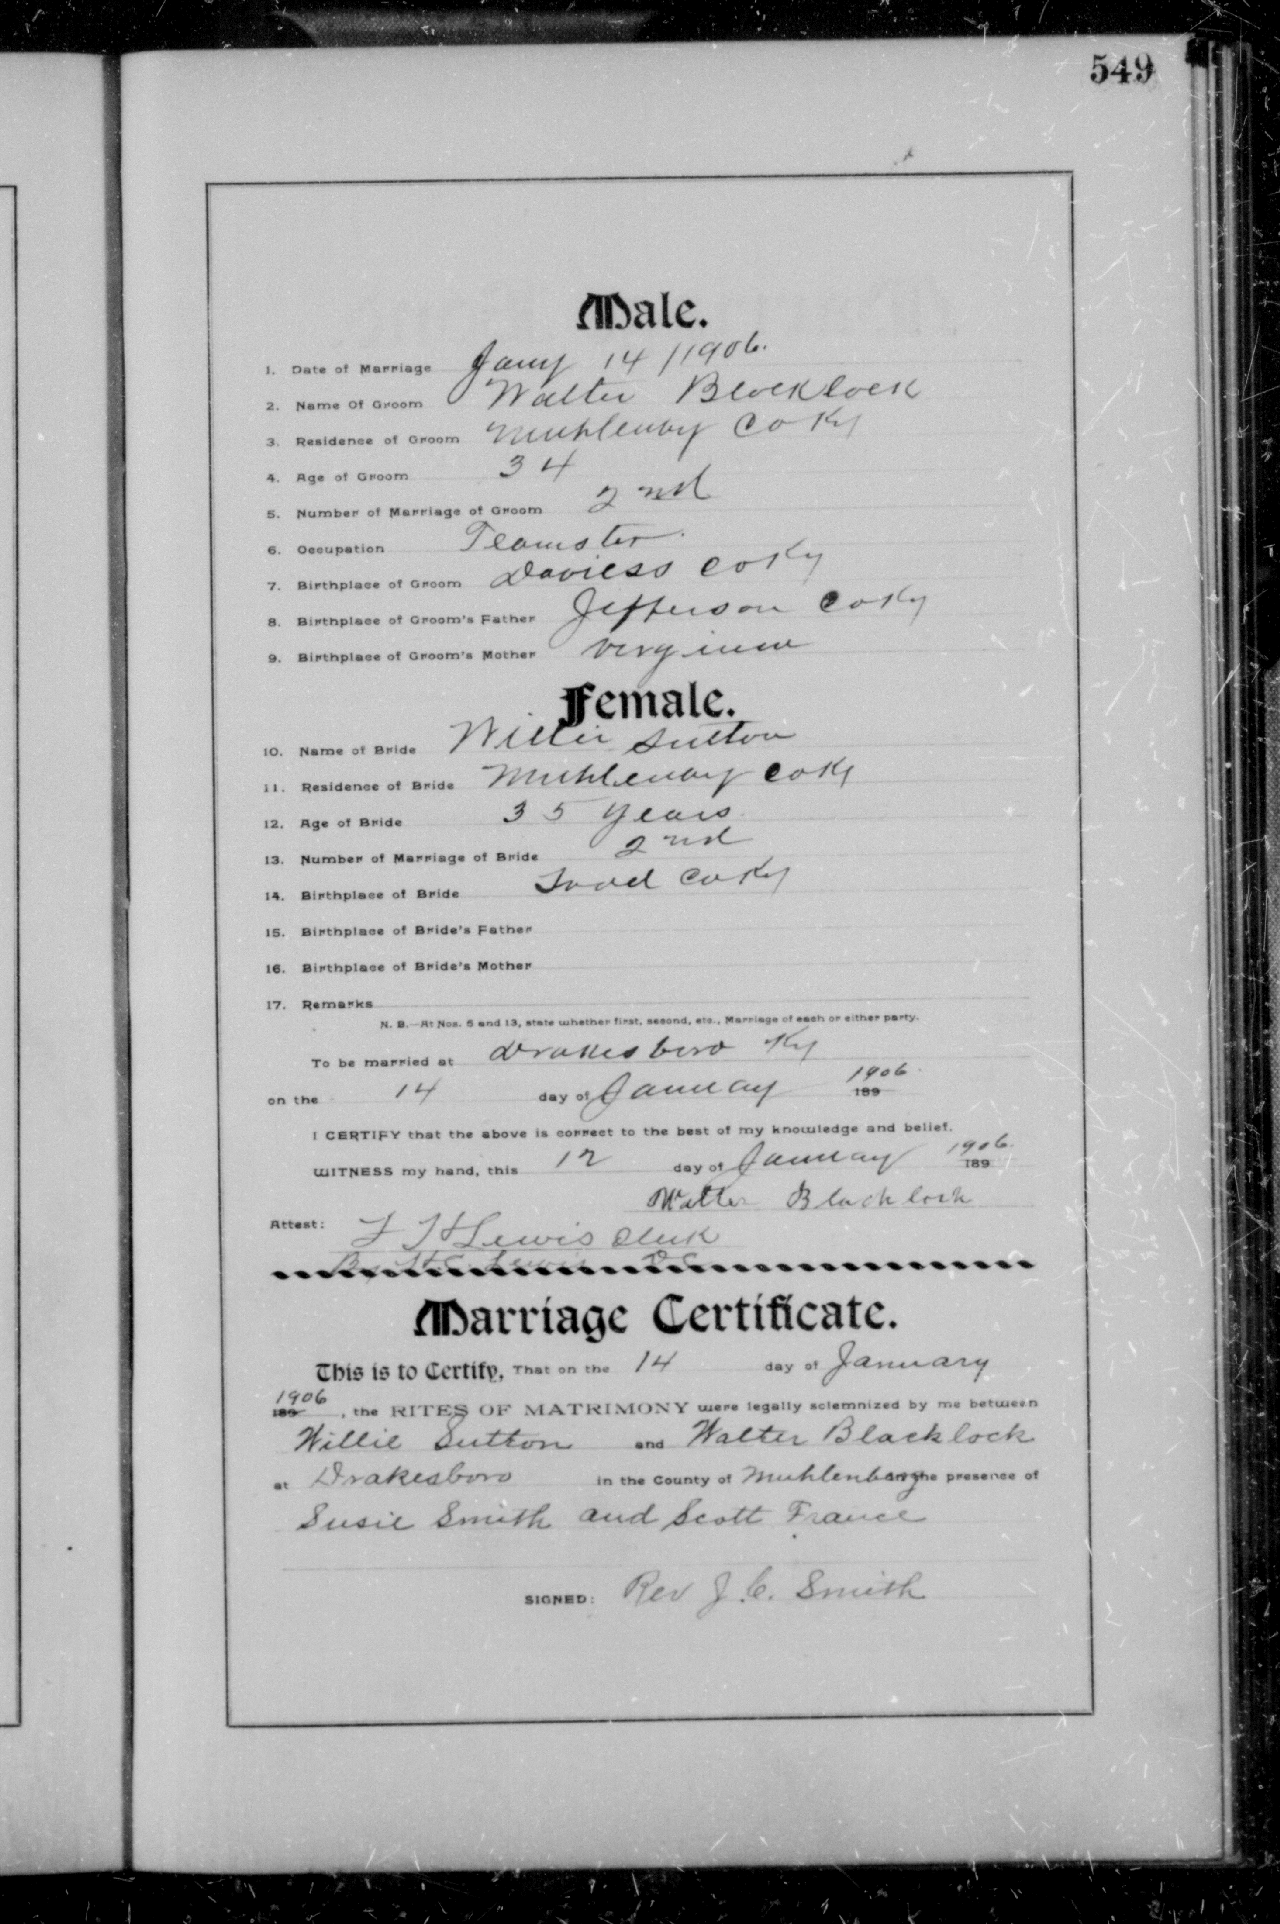 549
Male.
1. Date of Marriage Jany 14 / 1906.
2. Name Of Groom Walter Blocklock
3. Residence of Groom Muhlenbg Co Ky
4. Age of Groom 34
5. Number of Marriage of Groom 2nd
6. Occupation Teamster.
7. Birthplace of Groom Daviess Co Ky
8. Birthplace of Groom's Father Jefferson Co Ky
9. Birthplace of Groom's Mother Virginia
Female.
10. Name of Bride Willie Sutton
11. Residence of Bride Muhlenbg Co Ky
12. Age of Bride 35 Years
13. Number of Marriage of Bride 2nd
14. Birthplace of Bride Todd Co Ky
15. Birthplace of Bride's Father
16. Birthplace of Bride's Mother
17. Remarks
N. B.—At Nos. 5 and 13, state whether first, second, etc., Marriage of each or either party.
To be married at Drakesboro Ky
on the 14 day of January 1906 189
I CERTIFY that the above is correct to the best of my knowledge and belief.
WITNESS my hand, this 12 day of January 1906. 189
Walter Blacklock
Attest: T H Lewis Clerk
By Lewis D C
Marriage Certificate.
This is to Certify, That on the 14 day of January
1906 189 , the RITES OF MATRIMONY were legally solemnized by me between
Willie Sutton and Walter Blacklock
at Drakesboro in the County of Muhlenberg in the presence of
Susie Smith and Scott France
SIGNED: Rev J. C. Smith